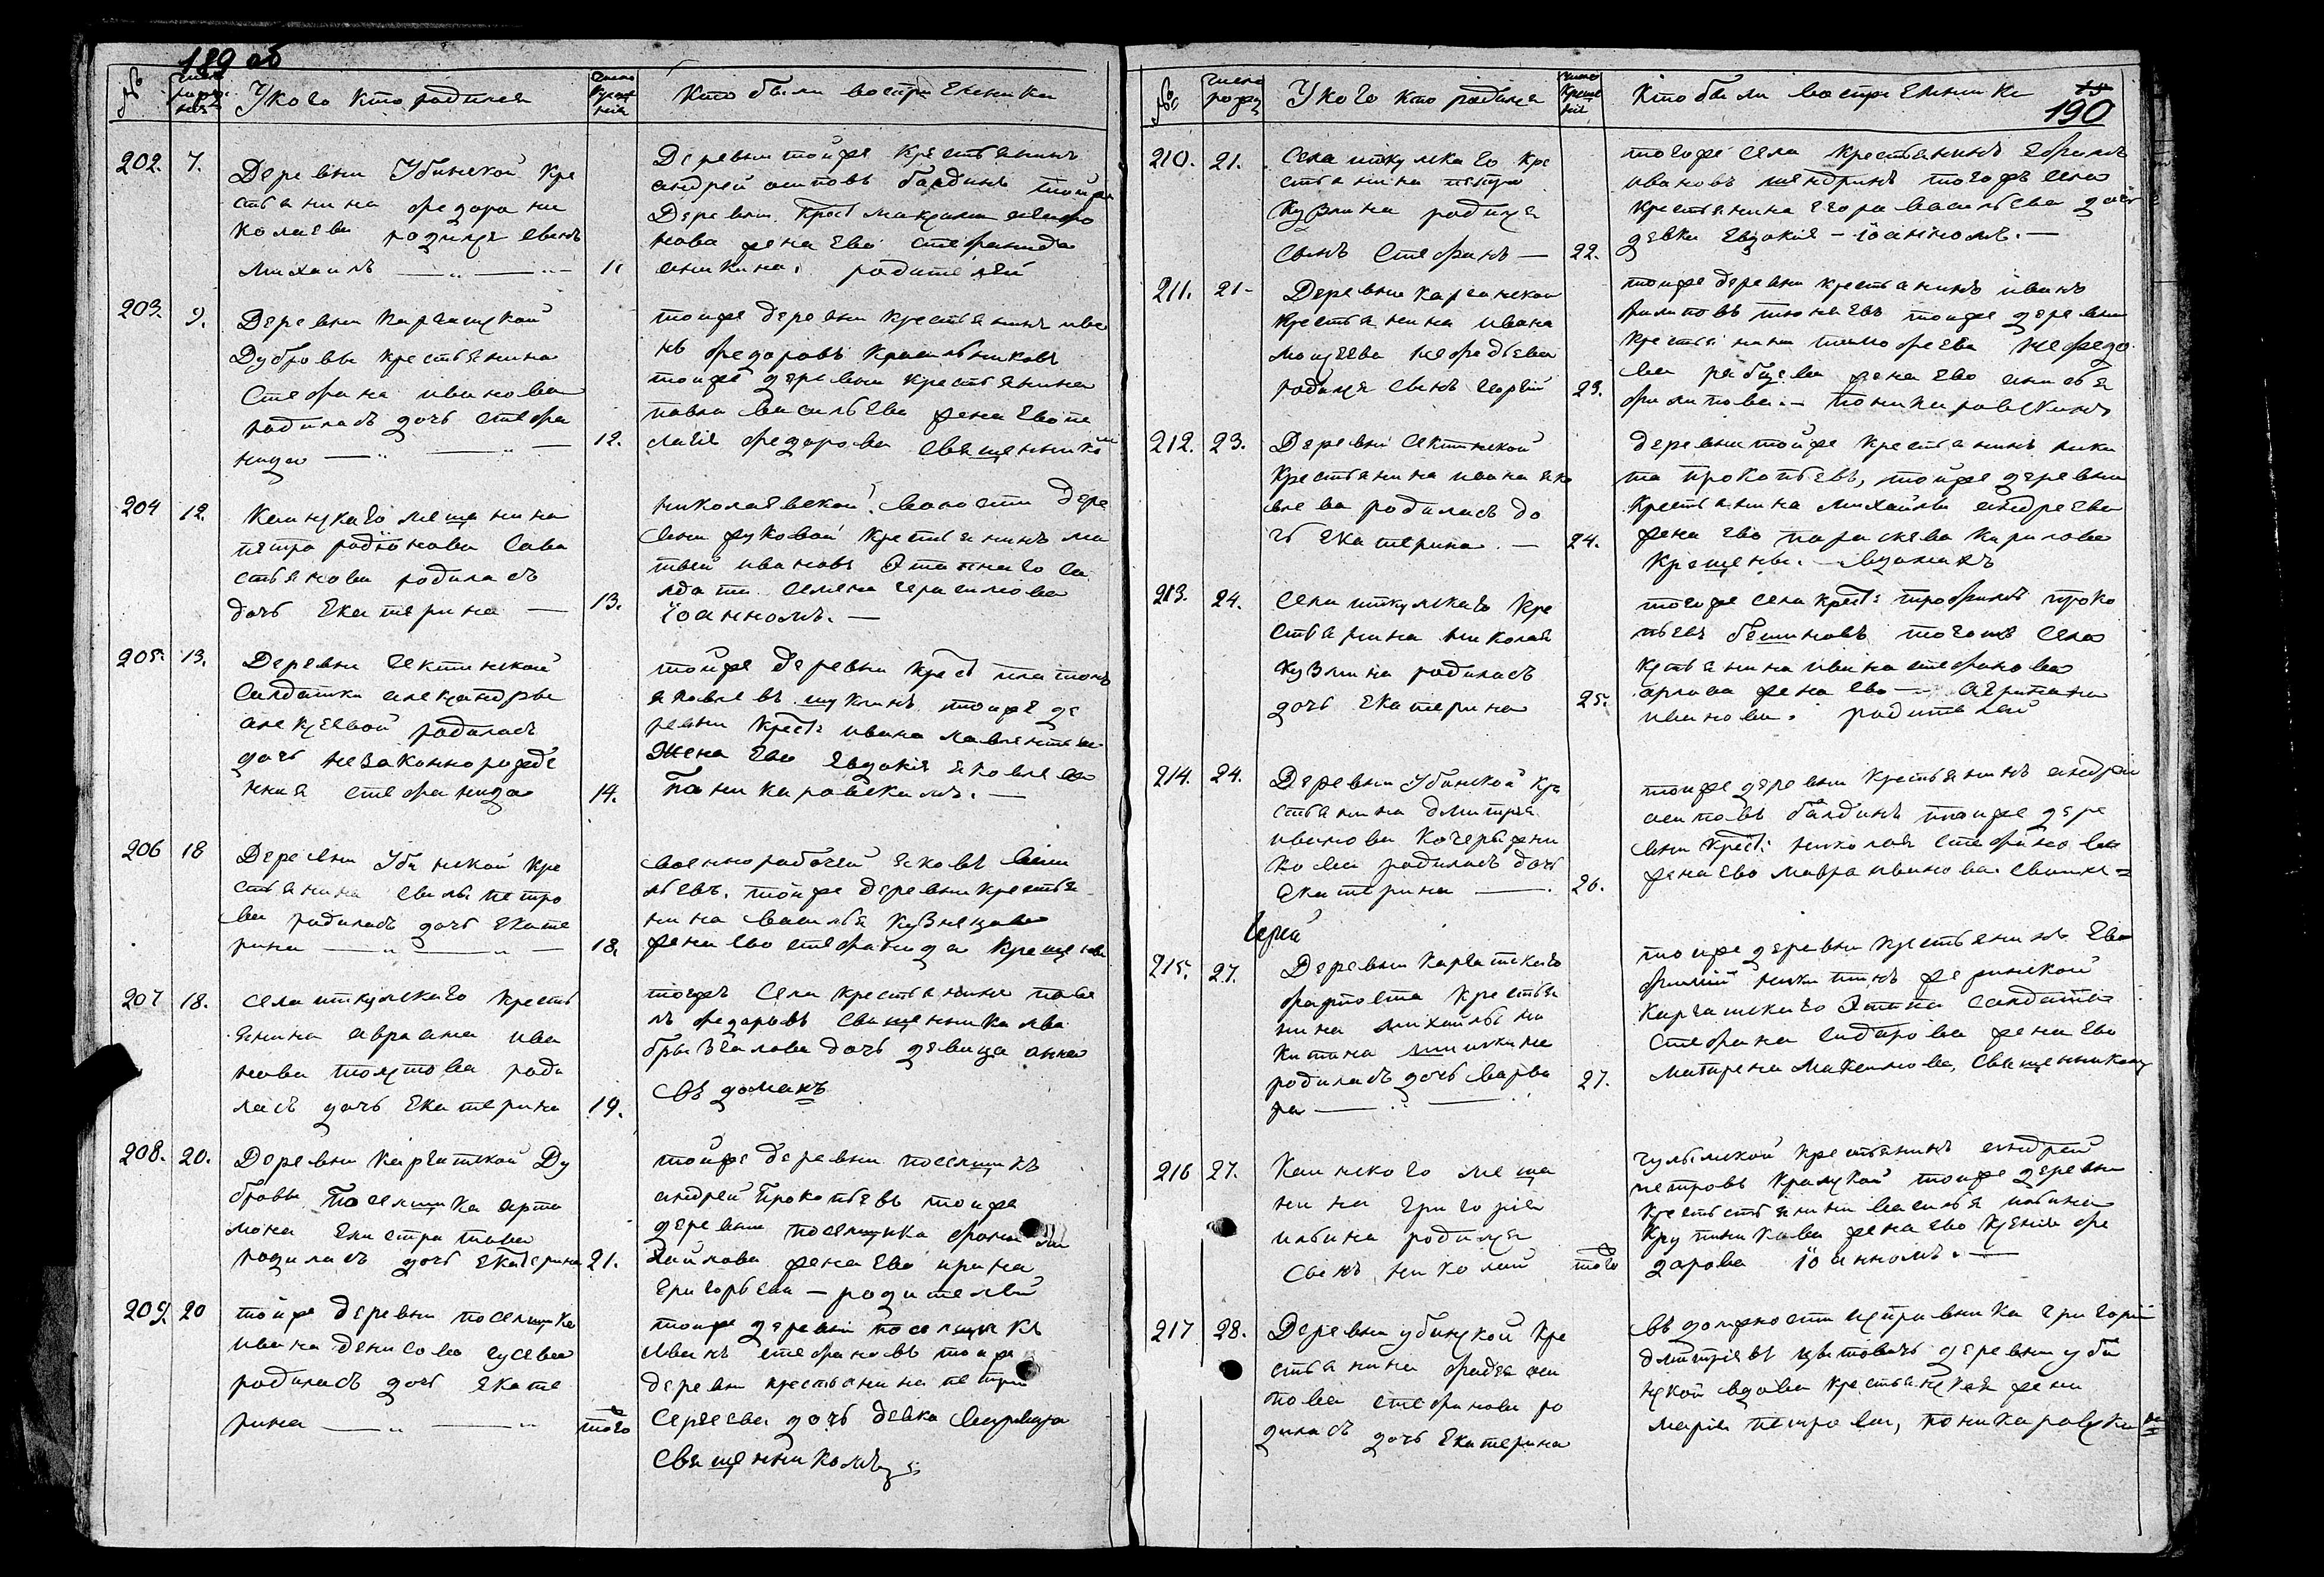 189 об
№
число рожде ния
У кого кто родился
число креще ния
Кто были восприемники
202.
7.
Деревни Убинской кре
стьянина федора ни
колаева родился сынъ
Михаилъ
11
Деревни тойже крестьянинъ
андрей осиповъ балдинъ тойже
Деревни крест максима
нова жена ево стефанида
аникина. родителей
203.
9.
Деревни Каргатской
Дубровы крестьянина
Стефана иванова
родилась дочь стефа
нида
12.
тойже деревни крестьянинъ ива
нъ федоровъ Красильниковъ
тойже деревни крестьянина
павла васильева жена ево пе
лагея федорова священникомъ
204
12.
Каинскаго мещанина
петра родіонова Сава
стьянова родилась
дочь Екатерина
13.
николаевской волости дере
вни жуковой крестьянинъ ма
твей ивановъ Этапнаго са
лдата Семена герасимова
іоанномъ.
205.
13.
Деревни Сектинской
Салдатки александры
алексеевой родилась
дочь незаконнорожде
нная стефанида
14.
тойже деревни крест платонъ
яковлевъ щукинъ тойже де
ревни крестъ ивана лаврентьева
Жена ево Евдокія яковлева
Поникаровскимъ.
206
18
Деревни Убинской кре
стьянина силы петро
ва родилась дочь Екате
рина
18.
военнорабочей яковъ васи
льевъ. тойже деревни крестья
нина василья кузнецова
жена ево стефанида крещены
207
18.
села иткульскаго кресть
янина авраама ива
нова толстова роди
лась дочь Екатерина
19.
тогожъ села крестьянинъ паве
лъ федоровъ священника льва
брызгалова дочь девица анна
въ домахъ
208.
20.
Деревни Каргатской Ду
бровы Поселщика арта
мона Евстратова
родилась дочь Екатерина
21.
тойже деревни поселщикъ
андрей Прокопьевъ тойже
деревни поселщика фрола ми
хайлова жена ево ирина
григорьева — родителей
209.
20
тойже деревни поселщика
ивана денисова гусева
родилась дочь екате
рина
того
тойже деревни поселщикъ
Иванъ стефановъ тойже
деревни крестьянина петра
Сергеева дочь девка варвара
Священникомъ
15
190
№
число рожд
У кого кто родился
число креще ния
Кто были восприемники
210.
21.
Села иткулскаго кре
стьянина петра
Кузмина родился
Сынъ Стефанъ —
22.
тогоже села крестьянинъ ефимъ
ивановъ шендринъ тогожъ села
крестьянина егора васильева дочь
девка Евдокия — іоанномъ. —
211.
21 -
Деревни карганской
крестьянина ивана
моисеева нефедьева
родился сынъ георгій
23.
тойже деревни крестьянинъ иванъ
филиповъ тюняевъ тойже деревни
крестьянина тимофеева нефедо
ва рябцева жена ево анисья
филипова. — поникаровскимъ
212.
23.
Деревни Сектинской
крестьянина ивана яко
влева родилась до
чь Екатерина. —
24.
деревни тойже крестьянинъ ники
та прокопьевъ, тойже деревни
крестьянина михайлы андреева
жена ево параскева карпова
крещены. — вдомахъ
213.
24.
Села иткулскаго кре
стьянина николая
кузмина родилась
дочь Екатерина
25.
тогоже села крестъ трофимъ проко
пьевъ бешиновъ тогожъ села
кстьянина ивана стефанова
орлова жена ево — Агрипина
иванова. родителей
214.
24.
Деревни Убинской кре
стьянина дмитрея
иванова Кочержни
кова родилась дочь
Екатерина —
26.
тойже деревни крестьянинъ андрей
осиповъ балдинъ тойже дере
вни крест: николая стефанова
жена ево мавра иванова.
215.
27.
Деревни Каргатскаго
фарпоста крестья
нина михайлы ни
китина шишкина
родилась дочь варва
ра —
27.
тойже деревни крестьянинъ Ев
фимий никитинъ
Каргатскаго Этапа салдата
стефана сидорова жена ево
матрена максимова, Священникомъ
216
27.
Каинского меща
нина григорія
ильина родился
Сынъ николай
того
чулымской крестьянинъ андрей
петровъ крамской тойже деревни
крестьстьянина василья ильина
крупникова жена ево ксенія фе
дорова іоанномъ. —
217
28.
Деревни убинской кре
стьянина фадея оси
пова стефанова ро
дилась дочь Екатерина
въ должности исправника григорій
дмитріевъ деревни уби
нской вдова крестьянская жена
марія петрова, поникаровским